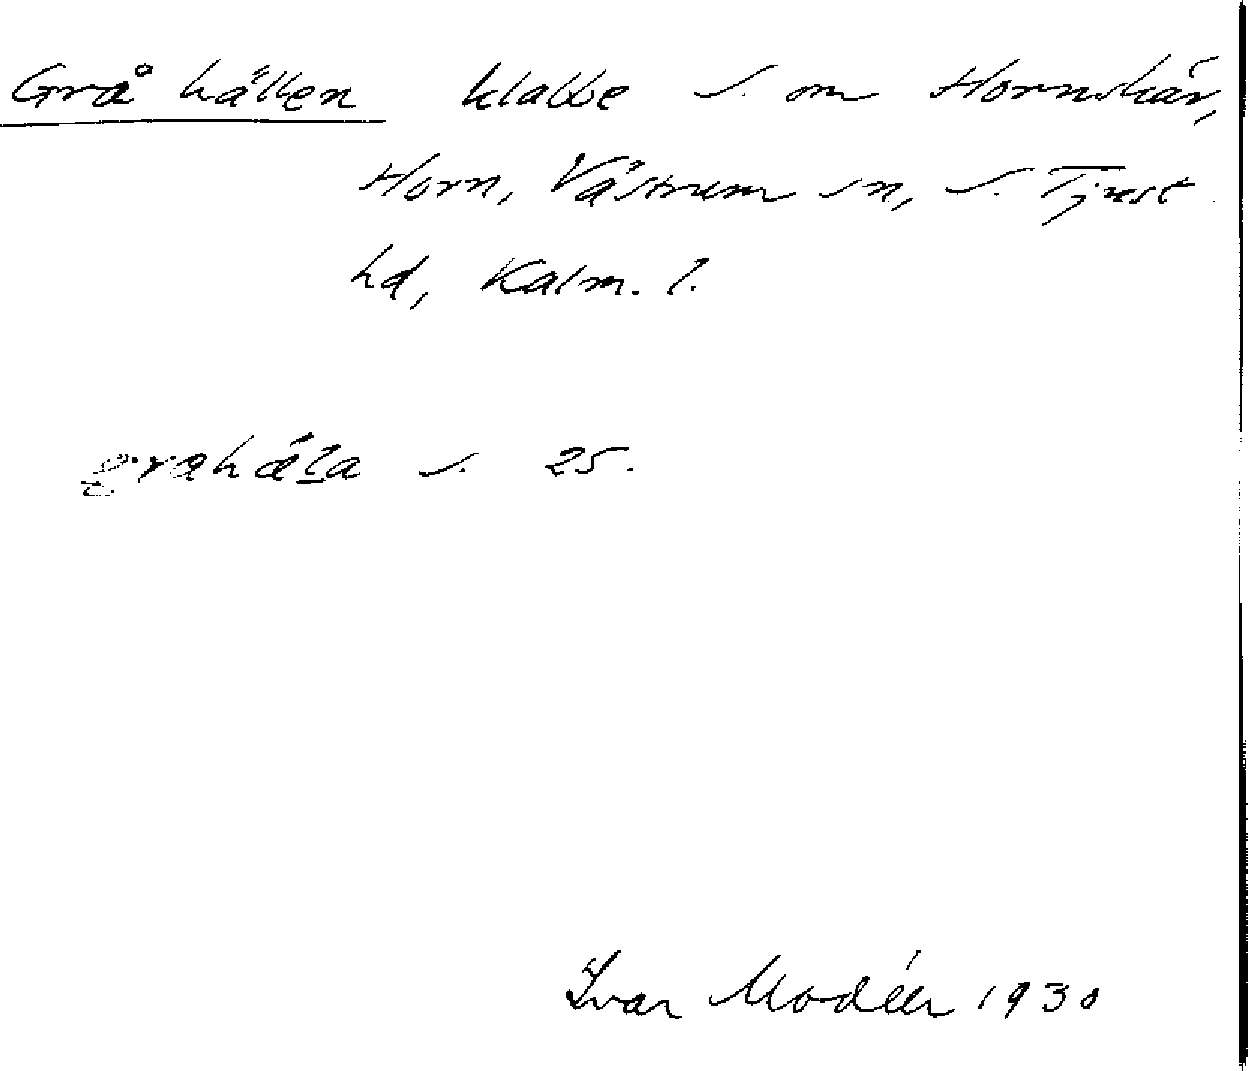 Grå hällen klabbe S. om Hornskär,
Horn, Västrum sn, S. Tjust
hd, Kalm. l.
grahǽla s. 25.
Ivar Modéer 1930